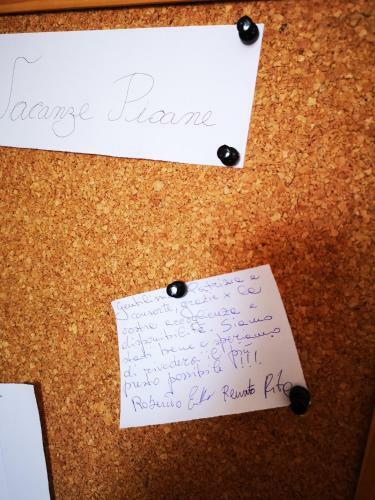 Vacanze Pisane
Gentilissima Patrizia e
consorte, grazie x la
vostra accoglienza e
disponibilità. Siamo
stati bene e speriamo
di rivederci il più
presto possibile!!!
Roberto Renato Rita